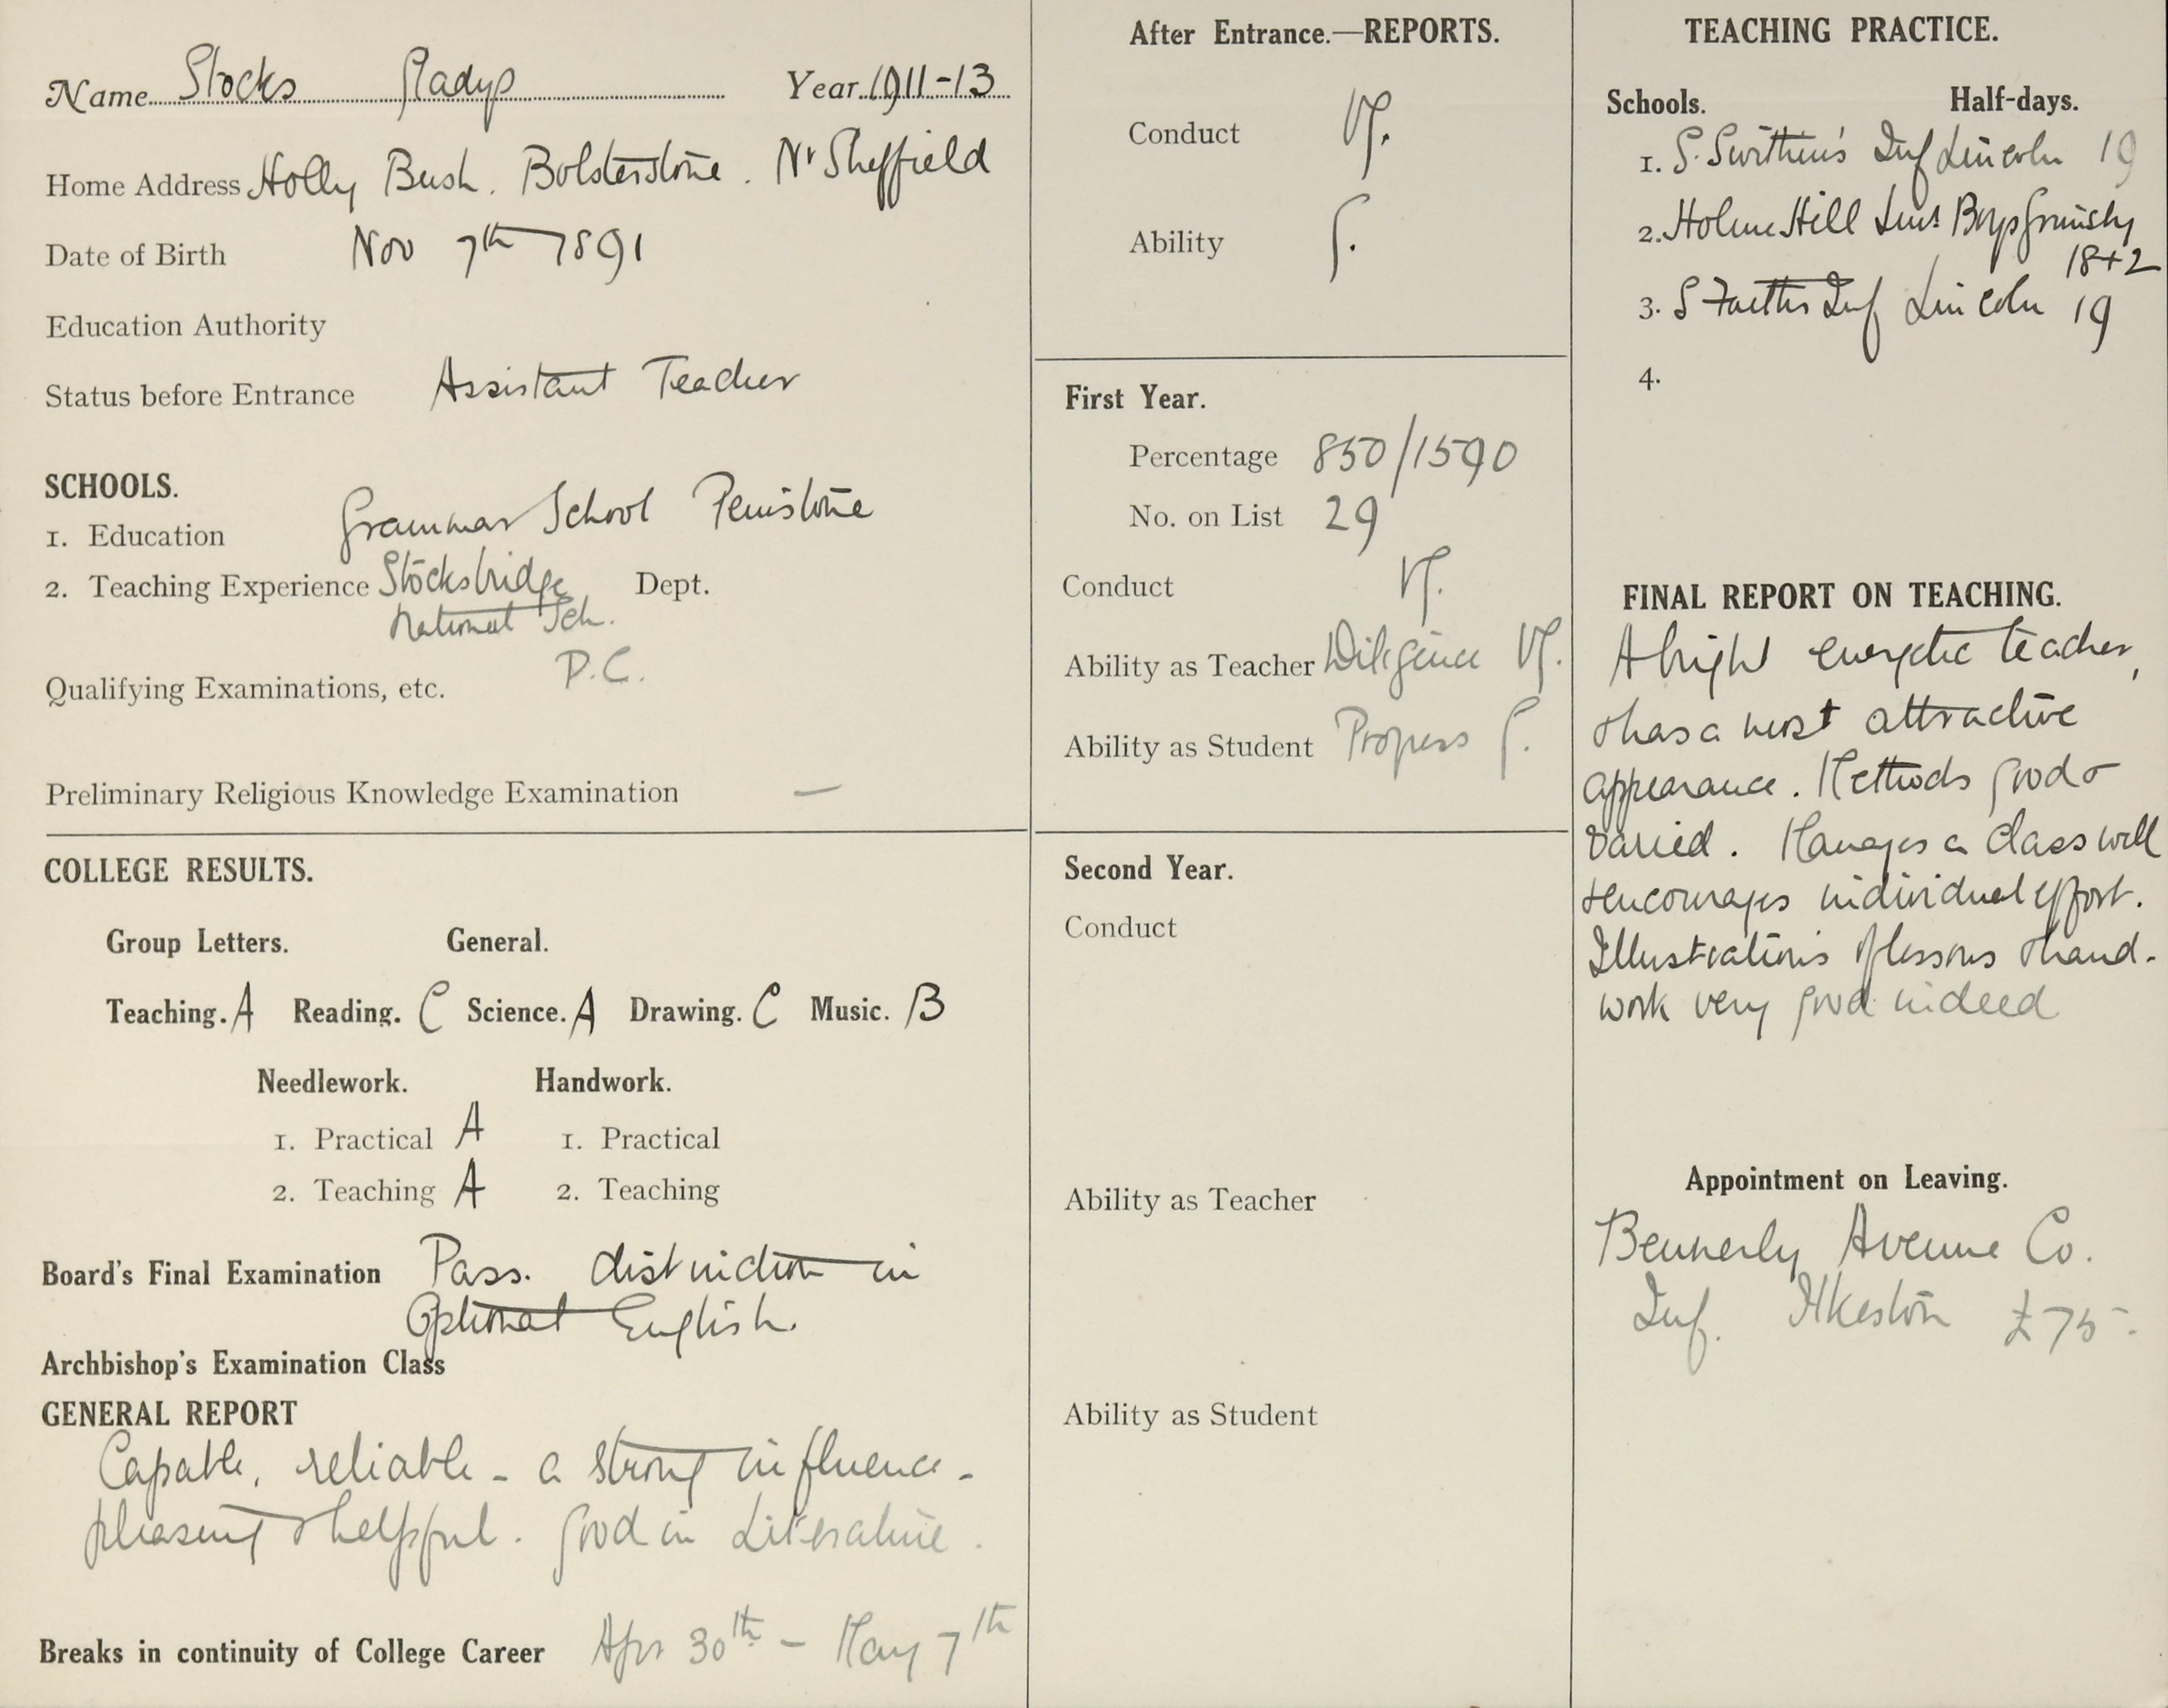 Name Stocks Gladys Year 1911-13
Home Address Holly Bush. Bolsterstone. Nr Sheffield
Date of Birth Nov 7th 1891
Education Authority
Status before Entrance Assistant Teacher
SCHOOLS.
1. Education Grammar School Penistone
2. Teaching Experience Stocksbridge Dept.
National Sch.
Qualifying Examinations, etc. P.C.
Preliminary Religious Knowledge Examination —
COLLEGE RESULTS.
Group Letters. General.
Teaching. A Reading. C Science. A Drawing. C Music. B
Needlework. Handwork.
1. Practical A 1. Practical
2. Teaching A 2. Teaching
Board's Final Examination Pass. distinction in
Optional English.
Archbishop's Examination Class
GENERAL REPORT
Capable, reliable - a strong influence -
pleasing & helpful. Good in Literature.
Breaks in continuity of College Career Apr 30th - May 7th
After Entrance.—REPORTS.
Conduct VG.
Ability G.
First Year.
Percentage 850/1590
No. on List 29
Conduct VG.
Ability as Teacher Diligence VG.
Ability as Student Progress G.
Second Year.
Conduct
Ability as Teacher
Ability as Student
TEACHING PRACTICE.
Schools. Half-days.
1. S. Swithin's Inf Lincoln 19
2. Holme Hill Boys Grimsby
18+2
3. S Faiths Inf Lincoln 19
4.
FINAL REPORT ON TEACHING.
A bright energetic teacher,
& has a most attractive
appearance. Methods good &
varied. Manages a class well
& encourages individual effort.
Illustrations of lessons & hand-
work very good indeed
Appointment on Leaving.
Bennerly Avenue Co.
Inf. Ilkeston £75-.